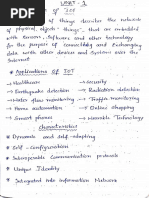 UNIT - 1
of IOT
of things describe the network
of physical objects - things, that are embedded
with sensors, Software, and other technology
for the purpose of connecting and Exchanging
data with other devices and Systems over the
Internet
* Applications Of IOT
→ Healthcare
→ Security
→ Earthquake detection
→ Radiation detection
→ Water flow monitoring
→ Traffic monitoring
→ Home automation
→ Online Shopping
→ Smart phones
→ Wearable Technology
Characteristics
* Dynamic and self-adapting
* Self - Configuration
* Interoperable Communication protocols
* Unique Identity
* Integrated into Information Network